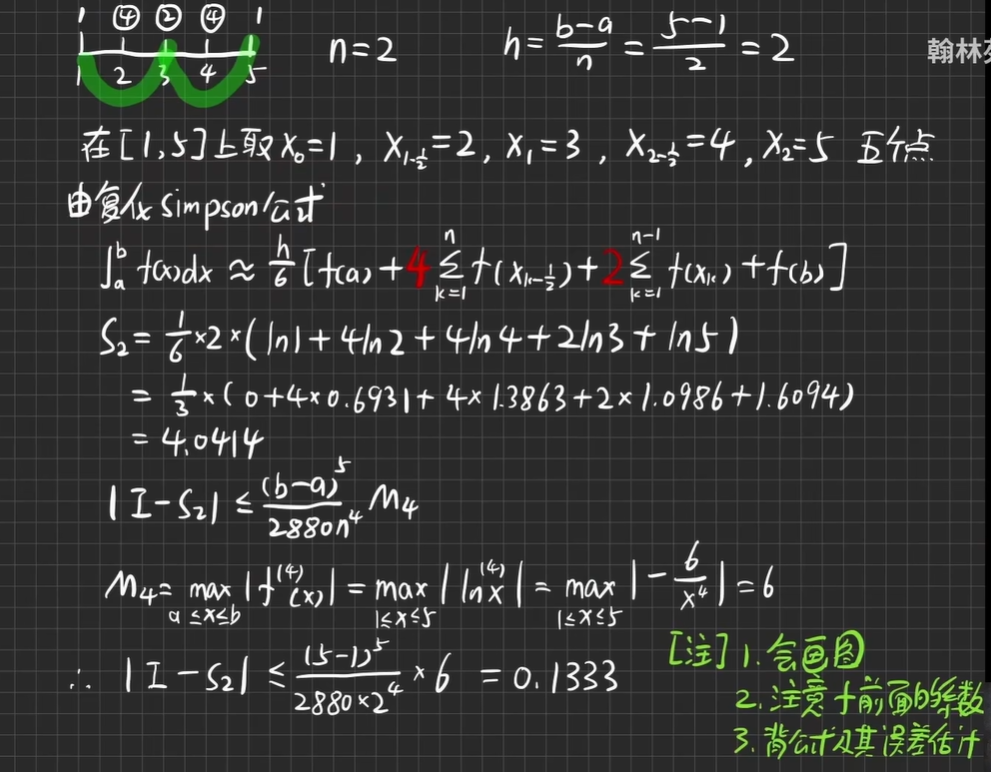 1 ④ ② ④ 1
1 2 3 4 5
n=2 h=\frac{b-a}{n}=\frac{5-1}{2}=2
翰林
在[1,5]上取X₀=1, X_{1-\frac{1}{2}}=2, X₁=3, X_{2-\frac{1}{2}}=4, X₂=5 五个点
由复化Simpson公式
∫_a^b f(x)dx ≈ \frac{h}{6}[f(a)+4\sum_{k=1}^{n} f(x_{k-\frac{1}{2}})+2\sum_{k=1}^{n-1} f(x_k)+f(b)]
S₂=\frac{1}{6}×2×(ln1+4ln2+4ln4+2ln3+ln5)
=\frac{1}{3}×(0+4×0.6931+4×1.3863+2×1.0986+1.6094)
=4.0414
|I-S₂|≤\frac{(b-a)^5}{2880n^4}M₄
M₄=\max_{a≤x≤b}|f^{(4)}(x)|=\max_{1≤x≤5}|ln^{(4)}x|=\max_{1≤x≤5}|-\frac{6}{x^4}|=6
∴ |I-S₂|≤\frac{(5-1)^5}{2880×2^4}×6=0.1333
[注] 1.会画图
2.注意f前面的系数
3.背公式及其误差估计